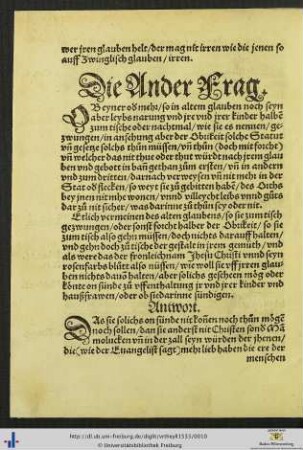 wer jren glauben helt/der mag nit irren wie die jenen so
auff Zwinglisch glauben/irren.
Die Ander Frag.
OB eyner od mehr/so in altem glauben noch seyn
aber leybs narung vnd jre vnd jrer kinder halbē
zum tische oder nachtmal/wie sie es nennen/ge-
zwungen/in ansehung aber der Obrikeit solche Statut
vñ gesetze solchs thun müssen/vñ thūn (doch mit forcht)
vñ welcher das nit thut oder thut würdt nach jrem glau
ben vnd gebott in bañ gethan zům ersten/vñ in andern
vnd zum dritten/darnach verweysen vñ nit mehr in der
Stat od flecken/so weyt sie zů gebitten habē/des Orths
bey jnen nit mehr wonen/vnnd villeycht leibs vnnd gůts
dar zů nit sicher/was darinne zů thūn sey oder nit.
Etlich vermeinen des alten glaubens/so sie zum tisch
gezwungen/oder sonst forcht halber der Obrikeit/so sie
zum tisch also gehn müssen/doch nichts darauff halten/
vnd gehn doch zů tische der gestalt in jrem gemůth/vnd
als were das der fronleichnam Jhesu Christi vnnd seyn
rosenfarbs blůt also müssen/wie woll sie vff jren glau-
ben nichts dauō halten/aber solichs geschehen mög oder
könte on sünde zů vffenthaltung jr vnd jrer kinder vnd
haußfrawen/oder ob sie darinne sündigen.
Antwort.
DAs sie solichs on sünde nit koñen noch thūn mögē
noch sollen/dan sie anderst nit Christen sond Ma
molucken vñ in der zall seyn würden der jhenen/
die (wie der Euangelist sagt) mehr lieb haben die ere der
menschen
http://dl.ub.uni-freiburg.de/diglit/
© Universitätsbibliothek Freiburg